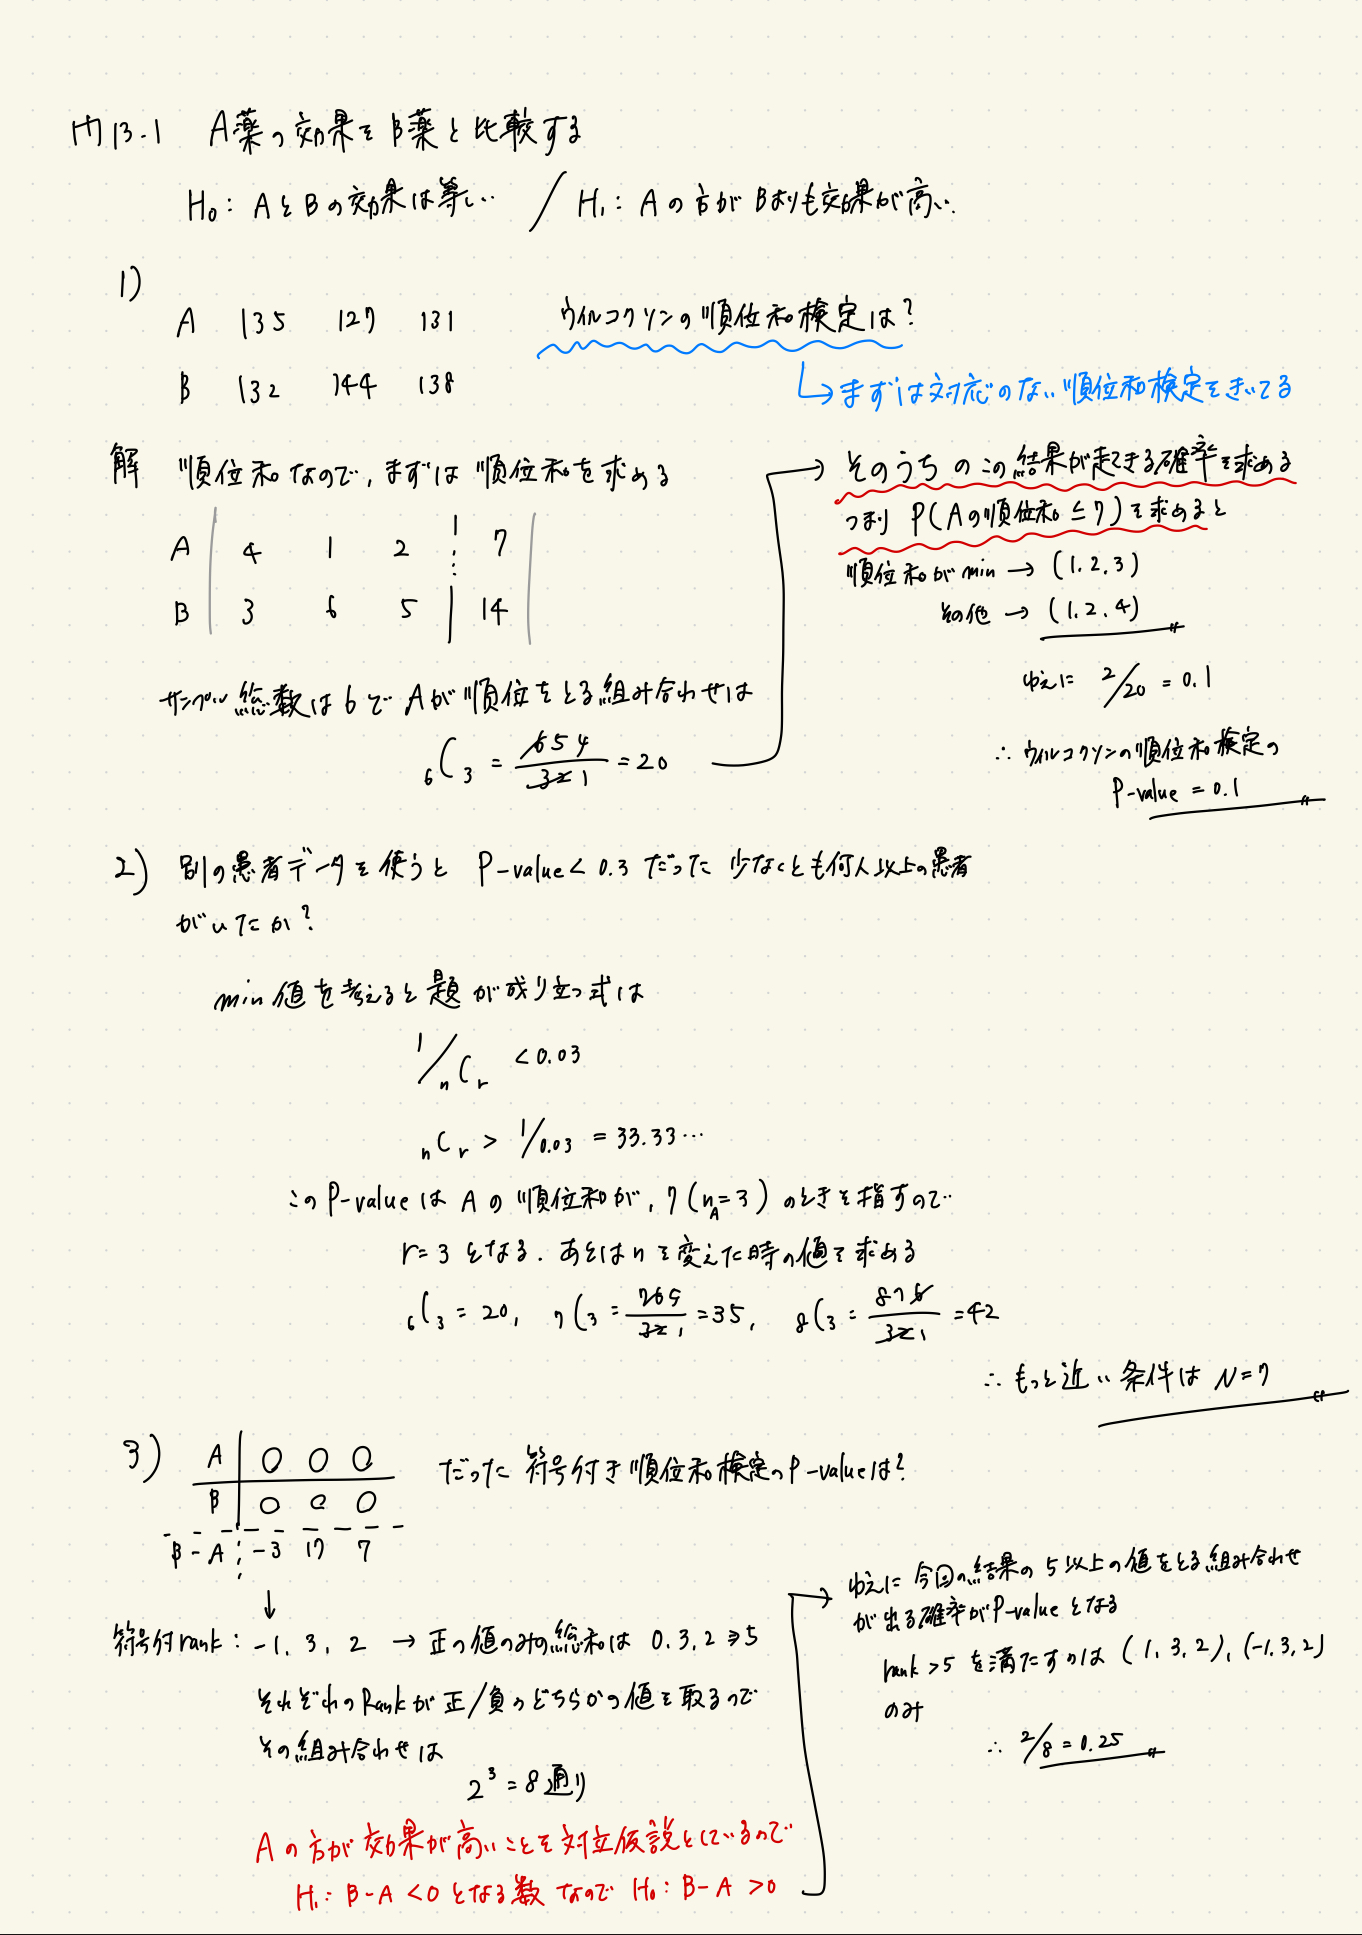 問13-1 A薬の効果をB薬と比較する
H₀: AとBの効果は等しい / H₁: Aの方がBよりも効果が高い
1)
A 135 127 131
B 132 144 138
ウィルコクソンの順位和検定は?
↳ まずは対応のない順位和検定をきいてる
解 順位和なので,まずは順位和を求める
A 4 1 2 7
B 3 6 5 14
サンプル総数は6でAが順位をとる組み合わせは
₆C₃ = 654/321 = 20
→ そのうちのこの結果が起きる確率を求める
つまり P(Aの順位和 ≤ 7)を求めると
順位和がmin → (1.2.3)
その他 → (1.2.4)
ゆえに 2/20 = 0.1
∴ ウィルコクソンの順位和検定の
P-value = 0.1
2) 別の患者データを使うと P-value < 0.3 だった 少なくとも何人以上の患者
がいたか?
min値を考えると題が成り立つ式は
1/nCr < 0.03
nCr > 1/0.03 = 33.33…
このP-valueはAの順位和が,7(n_A=3)のときを指すので
r=3となる. あとはnを変えた時の値を求める
₆C₃ = 20, ₇C₃ = 765/321 = 35, ₈C₃ = 876/321 = 42
∴ もっと近い条件は N=7
3) A 0 0 0
B 0 0 0
B-A -3 17 7
だった 符号付き順位和検定のP-valueは?
↓
符号付rank: -1, 3, 2 → 正の値のみの総和は 0.3.2 ⇒ 5
それぞれのRankが正/負のどちらかの値を取るので
その組み合わせは
2³ = 8通り
Aの方が効果が高いことを対立仮説としているので
H₁: B-A < 0 となる数なので H₀: B-A > 0
→ ゆえに今回の結果の5以上の値をとる組み合わせ
が出る確率がP-valueとなる
rank > 5 を満たすのは (1, 3, 2), (-1, 3, 2)
のみ
∴ 2/8 = 0.25